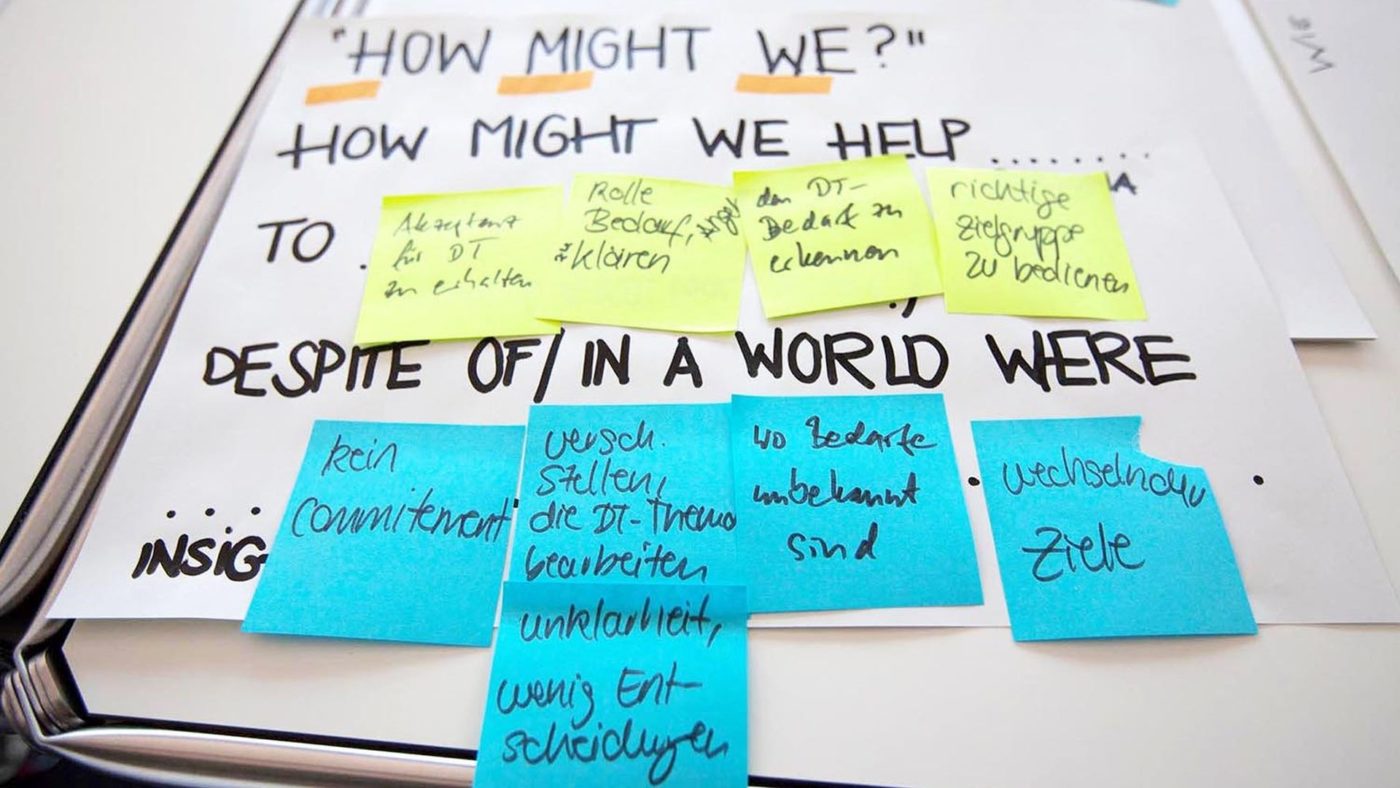 "HOW MIGHT WE?"
HOW MIGHT WE HELP ........
TO .
Akzeptanz
für DT
zu erhalten
Rolle
Bedarf,
zu klären
den DT-
Bedarf zu
erkennen
richtige
Zielgruppe
zu bedienen
DESPITE OF/IN A WORLD WERE
....
INSIG
kein
Commitement
versch.
Stellen,
die DT-Thema
bearbeiten
unklarheit,
wenig Ent-
scheidungen
wo Bedarfe
unbekannt
sind
wechselnden
Ziele